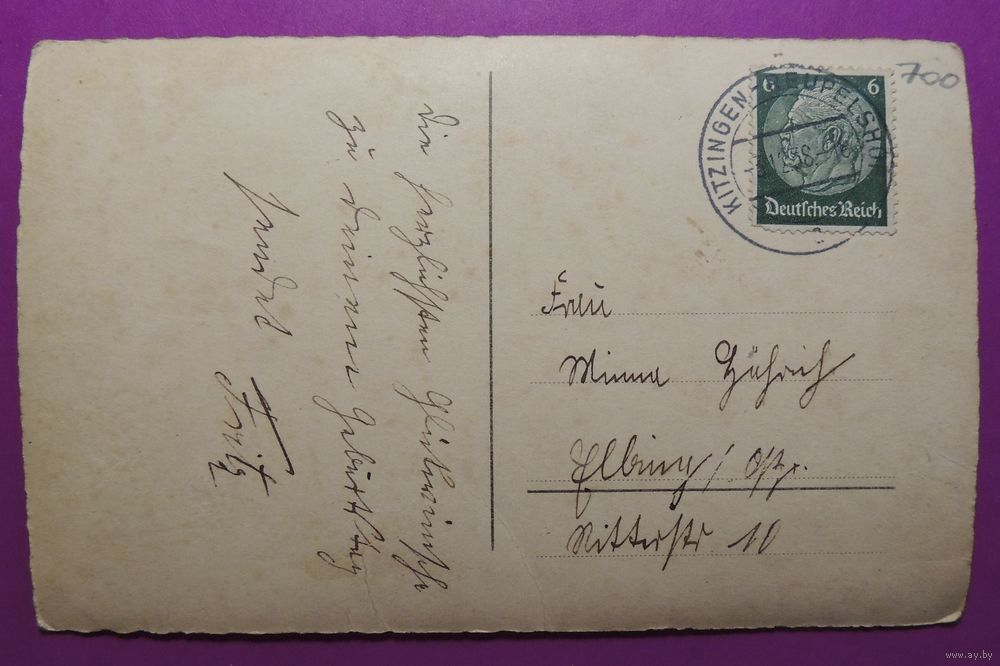 Die herzlichsten Glückwünsche
zu deinem Geburtstag
sendet
Fritz
KITZINGEN-REUPELSHO
6 6
Deutsches Reich
700
Frau
Minna
Elbing / Ostpr.
Ritterstr 10
www.ay.by